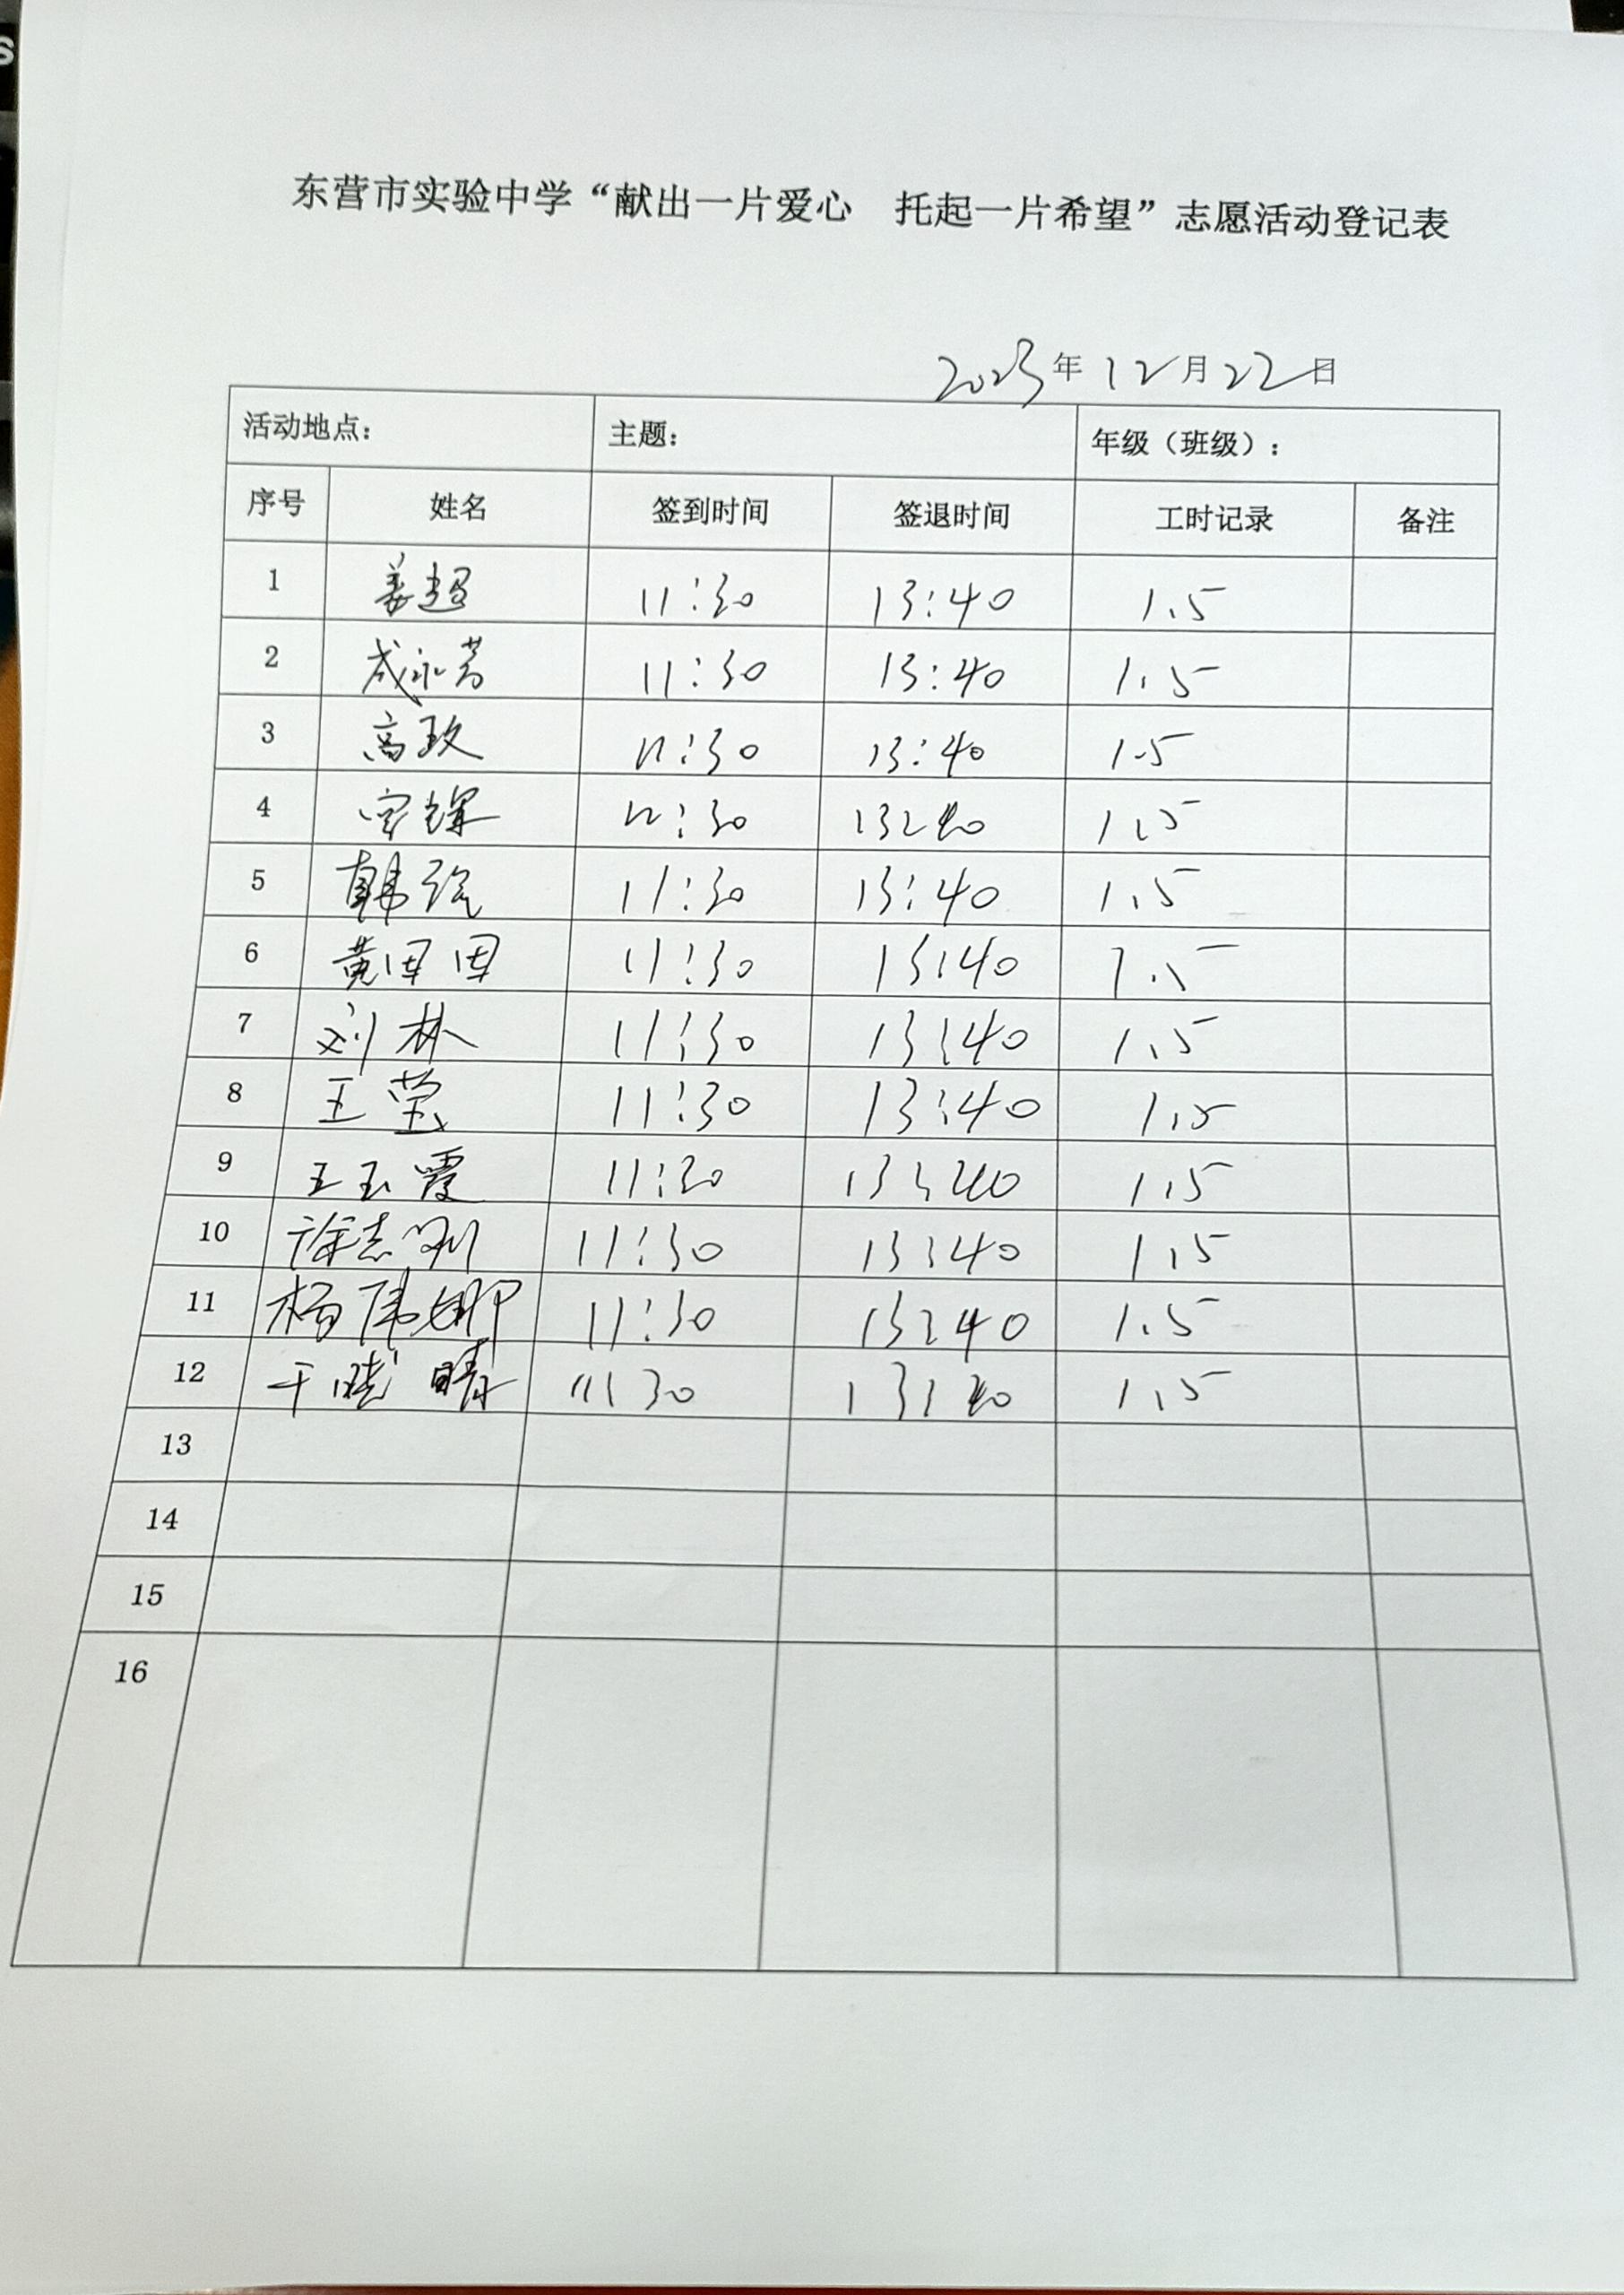 东营市实验中学“献出一片爱心 托起一片希望”志愿活动登记表
2023年12月22日
活动地点： 主题： 年级（班级）：
序号 姓名 签到时间 签退时间 工时记录 备注
1 姜超 11:30 13:40 1.5
2 成永芳 11:30 13:40 1.5
3 高玫 11:30 13:40 1.5
4 11:30 13:40 1.5
5 韩 11:30 13:40 1.5
6 黄团团 11:30 13:40 1.5
7 刘林 11:30 13:40 1.5
8 王莹 11:30 13:40 1.5
9 王玉霞 11:30 13:40 1.5
10 徐志刚 11:30 13:40 1.5
11 杨伟娜 11:30 13:40 1.5
12 于晓晴 11:30 13:40 1.5
13
14
15
16